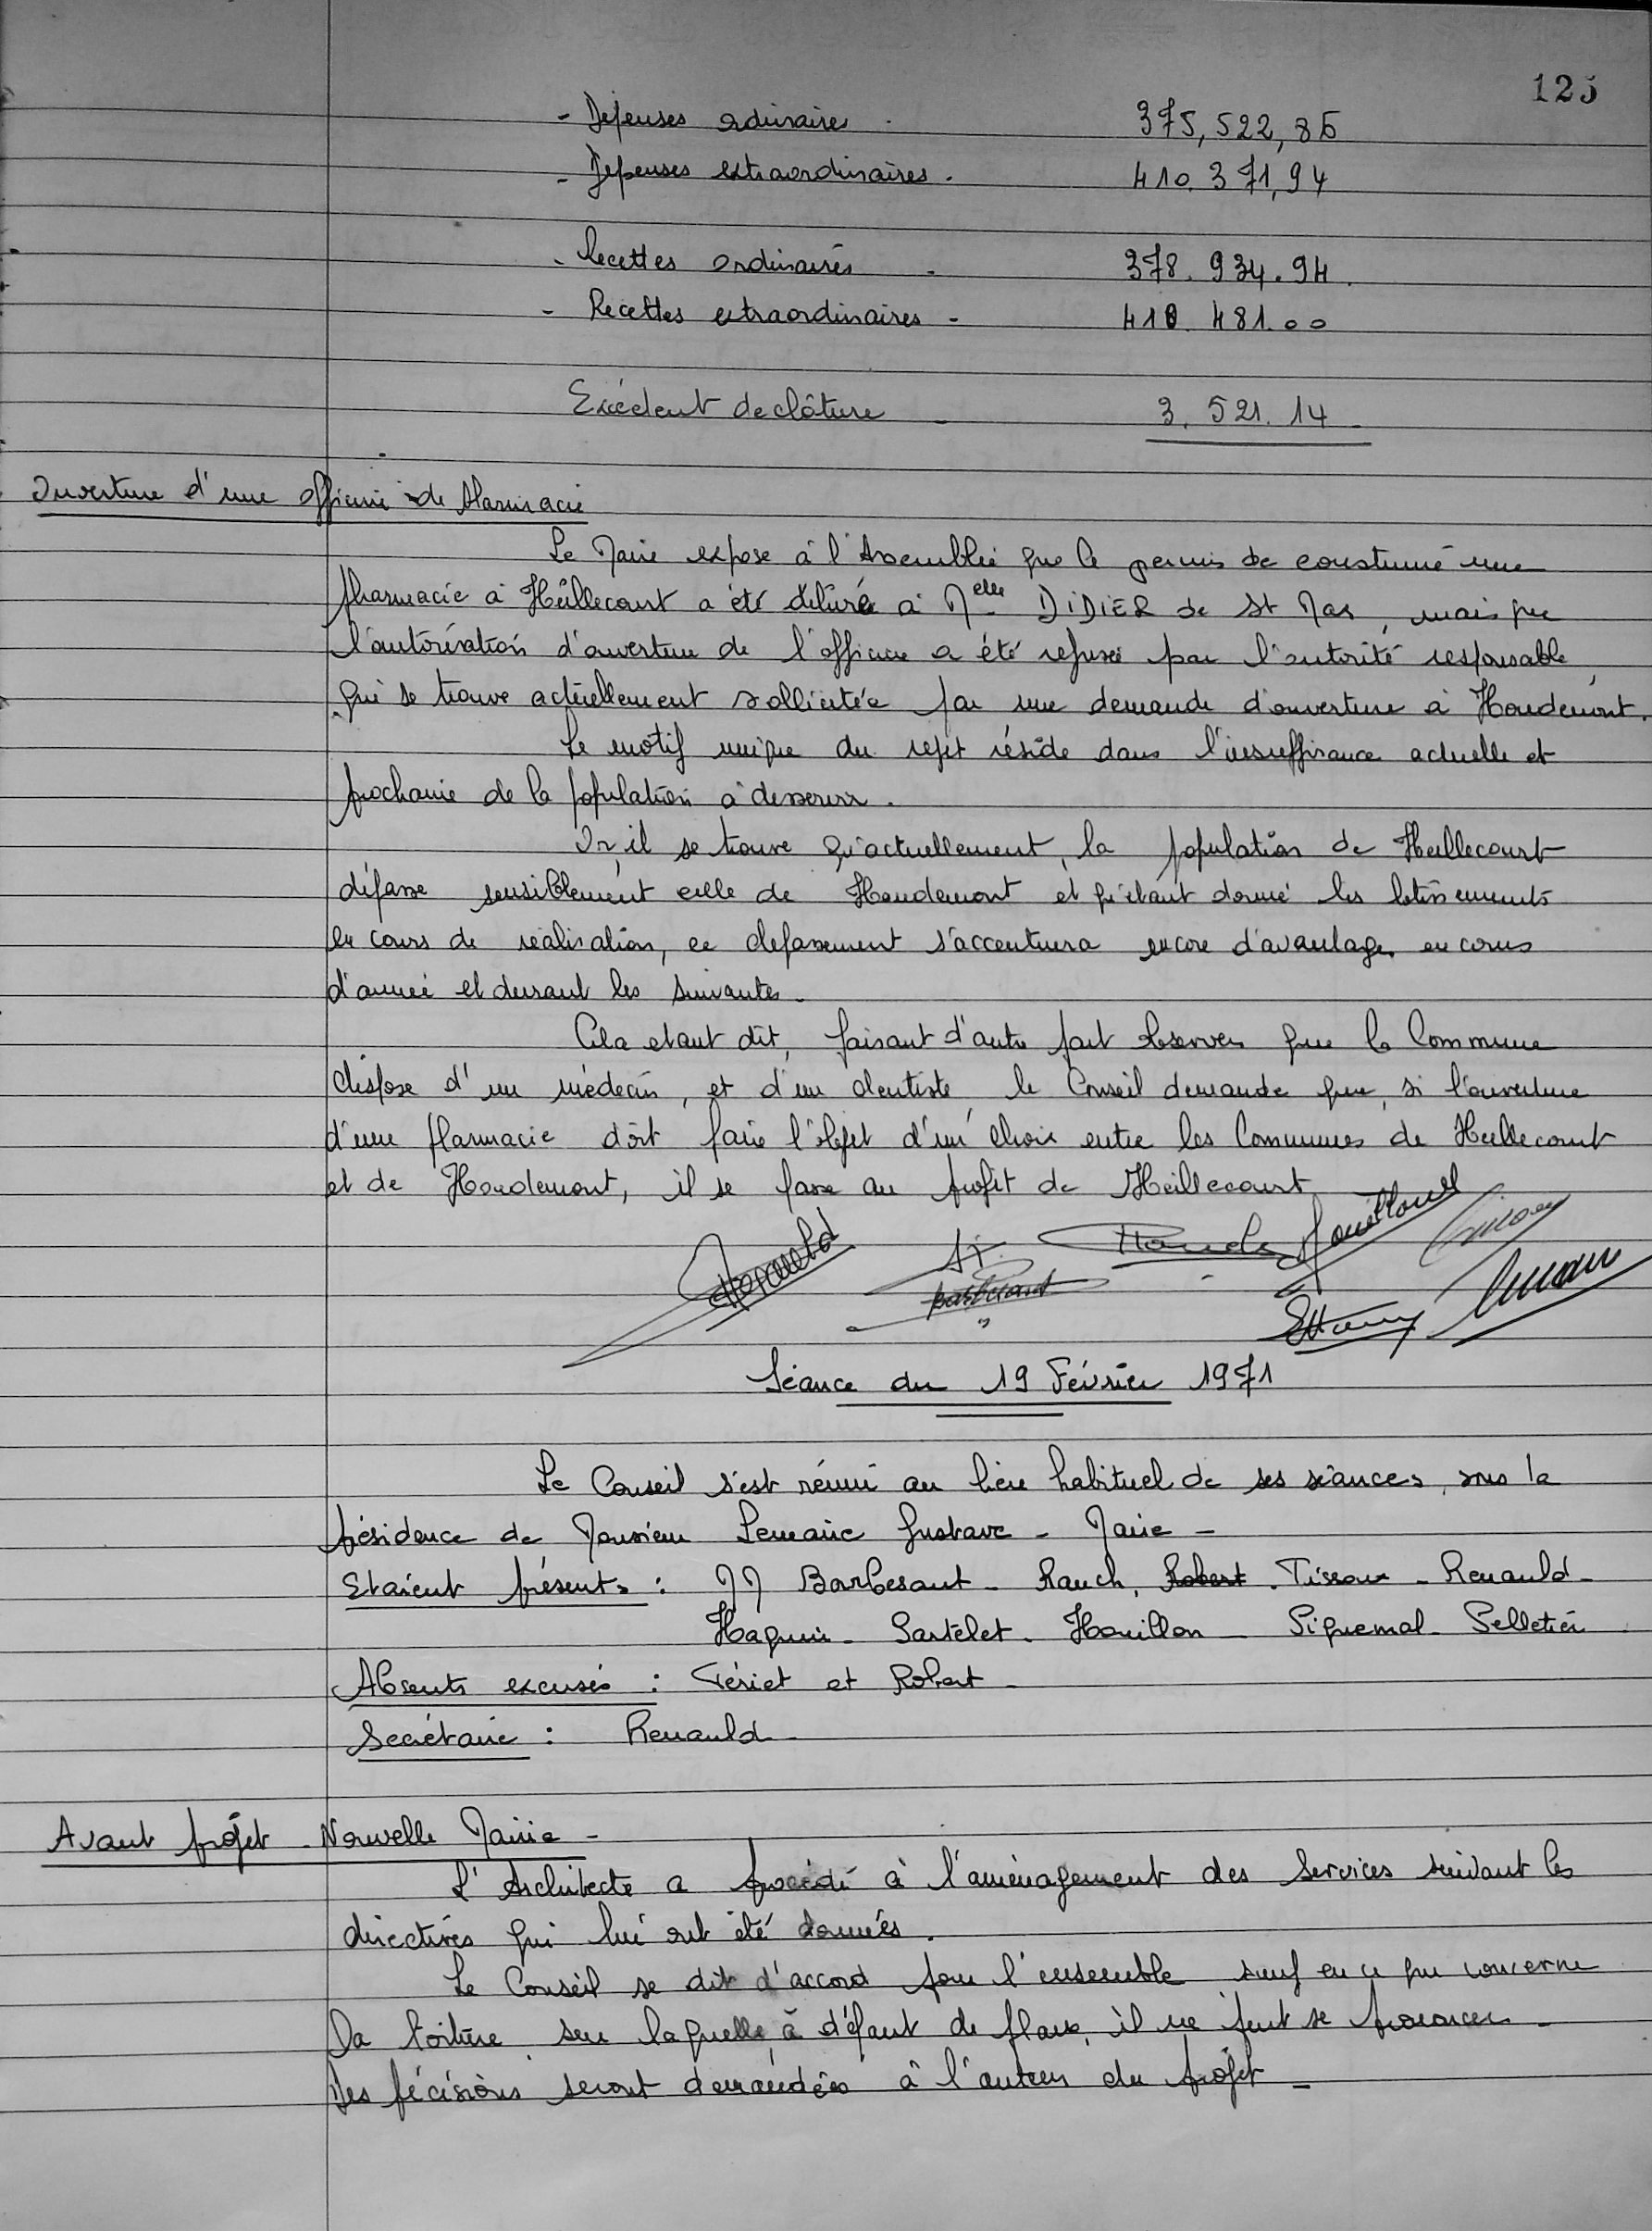 125
- Dépenses ordinaires - 375,522,86
- Dépenses extraordinaires - 410.371,94
- Recettes ordinaires - 378.934.94.
- Recettes extraordinaires - 410.481.00
Excédent de clôture - 3.521.14 -
Ouverture d'une officine de Pharmacie
Le Maire expose à l'Assemblée que le permis de construire une
pharmacie à Heillecourt a été délivré à Melle DIDIER de St Max, mais que
l'autorisation d'ouverture de l'officine a été refusée par l'autorité responsable,
qui se trouve actuellement sollicitée par une demande d'ouverture à Houdemont.
Le motif unique du rejet réside dans l'insuffisance actuelle et
prochaine de la population à desservir.
Or, il se trouve qu'actuellement, la population de Heillecourt
dépasse sensiblement celle de Houdemont et qu'étant donné les lotissements
en cours de réalisation, ce dépassement s'accentuera encore d'avantage en cours
d'année et durant les suivantes.
Cela etant dit, faisant d'autre part observer que la Commune
dispose d'un médecin, et d'un dentiste le Conseil demande que, si l'ouverture
d'une Pharmacie doit faire l'objet d'un choix entre les Communes de Heillecourt
et de Houdemont, il se fasse au profit de Heillecourt
Renauld Houillon
Barbesant
Séance du 19 Février 1971
Le Conseil s'est réuni au lieu habituel de ses séances, sous la
présidence de Monsieur Lemaire Gustave - Maire -
Etaient présents : MM Barbesant - Rauch, Robert - Tissoux - Renauld -
Haquin - Sartelet - Houillon - Piquemal - Pelletier
Absents excusés : Fériet et Robert -
Secrétaire : Renauld -
Avant projet - Nouvelle Mairie -
L'Architecte a procédé à l'aménagement des Services suivant les
directives qui lui ont été données.
Le Conseil se dit d'accord pour l'ensemble sauf en ce qui concerne
la toiture sur laquelle, à défaut de plans, il ne peut se prononcer -
Des précisions seront demandées à l'auteur du projet -